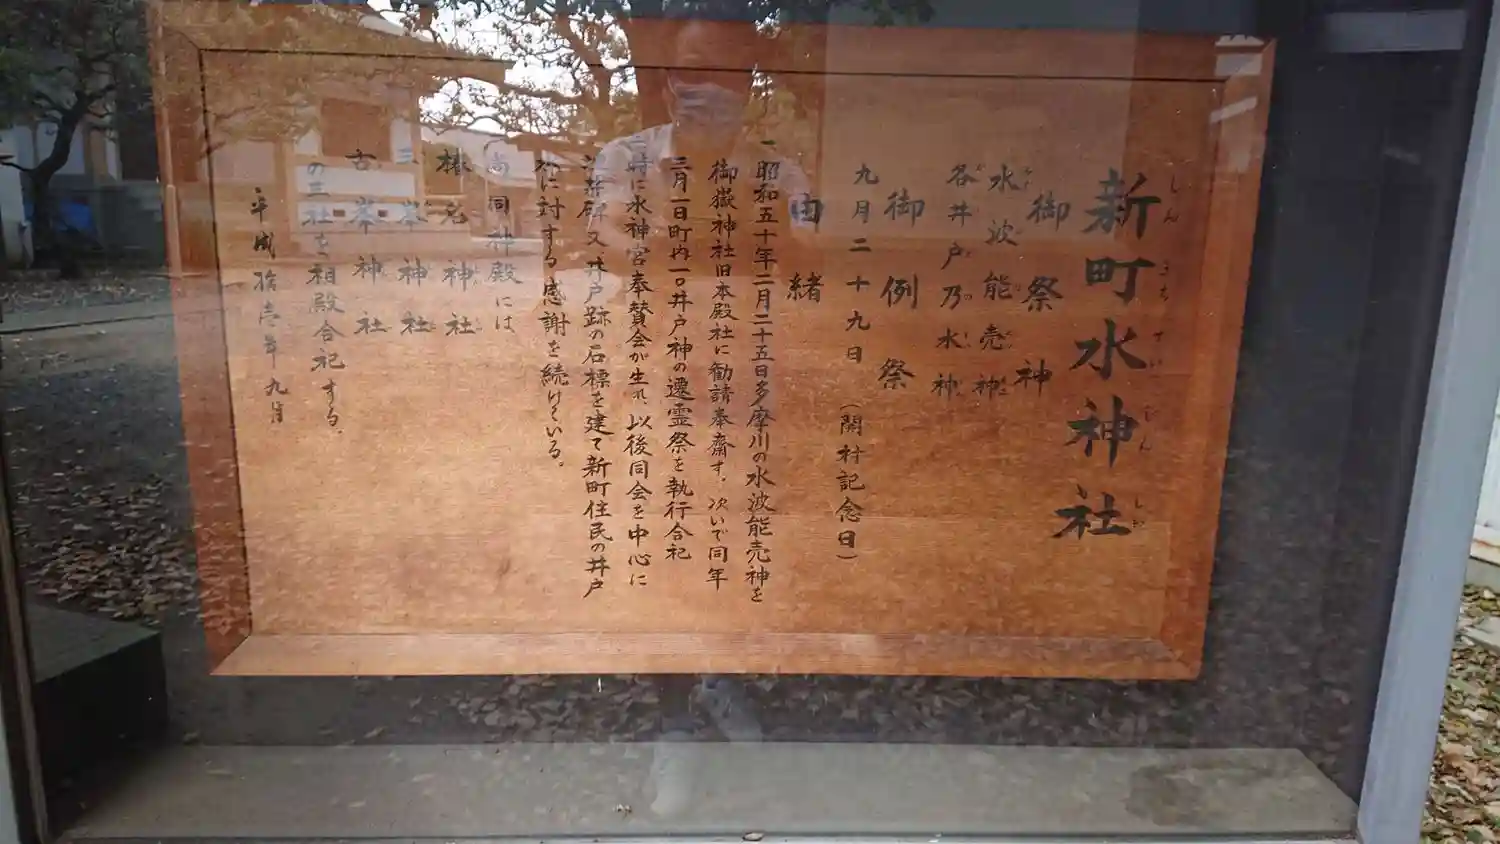 新町水神社
しんまちすいじんしゃ
御祭神
水波能売神
各井戸乃水神
御例祭
九月二十九日（開村記念日）
由緒
一昭和五十年二月二十五日多摩川の水波能売神を
御嶽神社旧本殿社に勧請奉齋す。次いで同年
三月一日町内一〇井戸神の遷霊祭を執行合祀
時に水神宮奉賛会が生れ、以後同会を中心に
碑又、井戸跡の石標を建て新町住民の井戸
に対する感謝を続けている。
尚同神殿には
榛名神社
三峯神社
古峯神社
の三社を相殿合祀する。
平成拾壱年九月